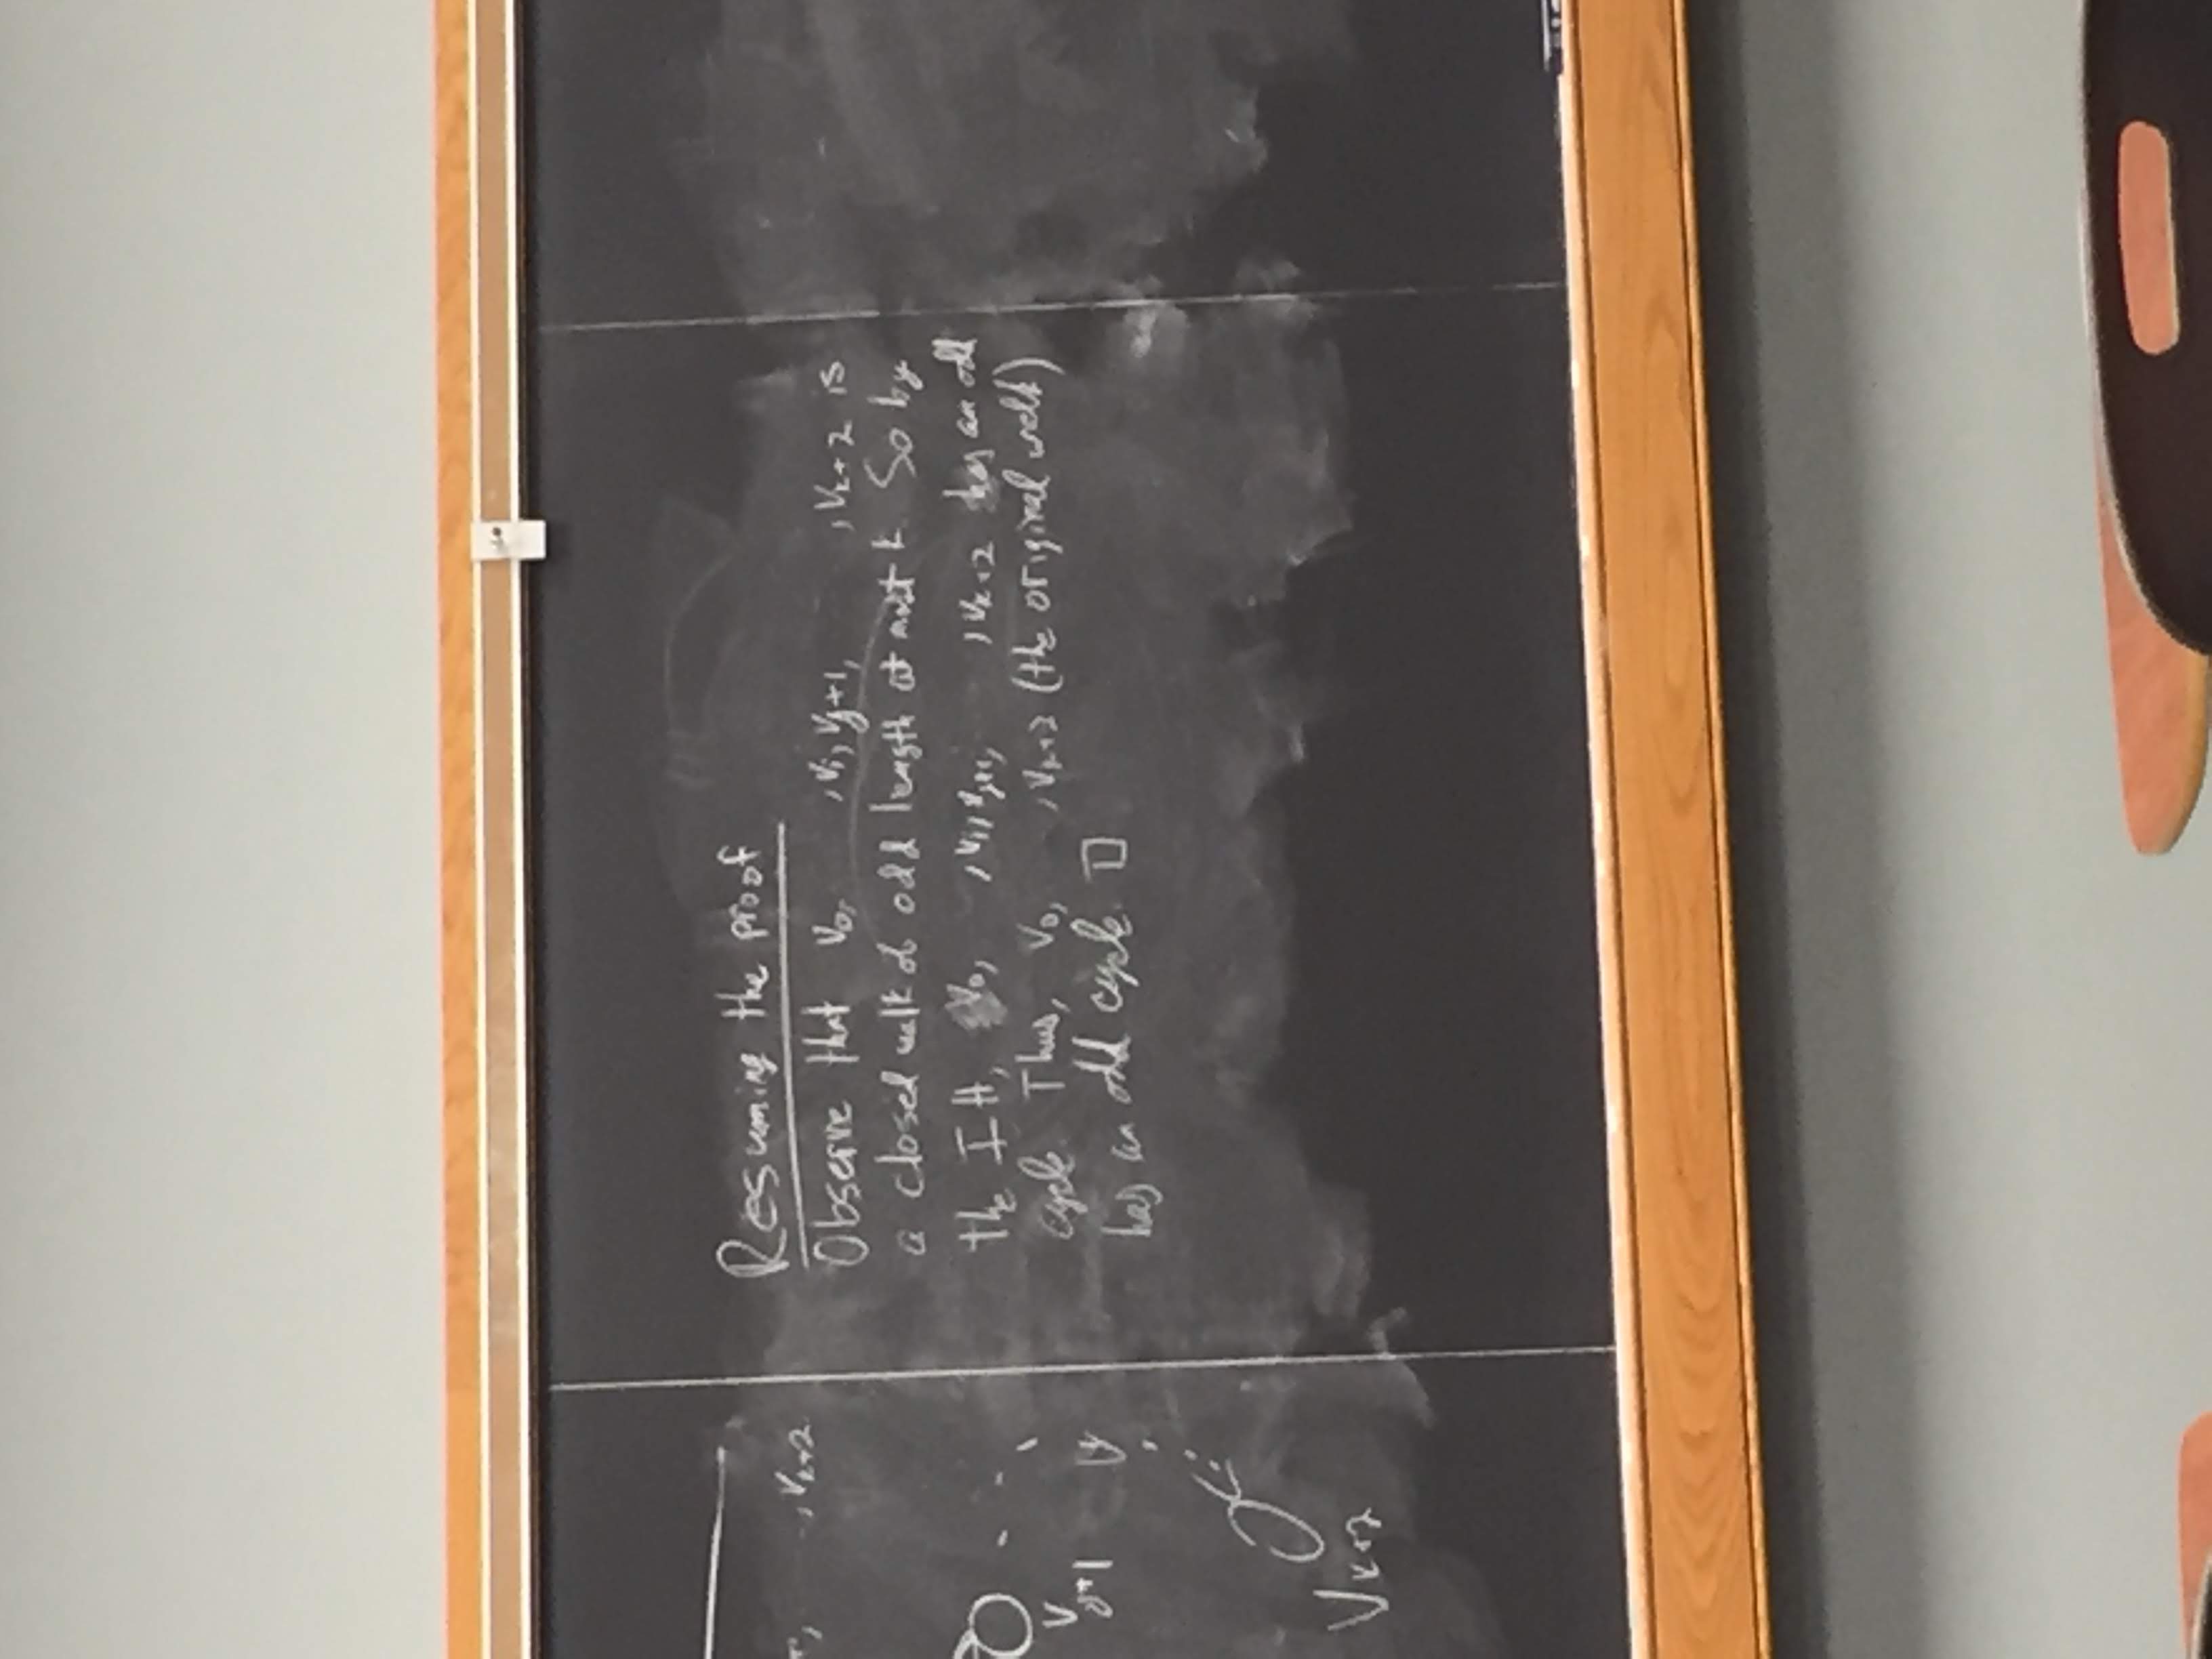 , v_{k+2}
v_{j+1}
v_{k+2}
Resuming the proof
Observe that v_0,      , v_i, v_{j+1},      , v_{k+2} is
a closed walk of odd length at most k. So by
the IH, v_0,      , v_i, v_{j+1},      , v_{k+2} has an odd
cycle. Thus, v_0,      , v_{k+2} (the original walk)
has an odd cycle. □